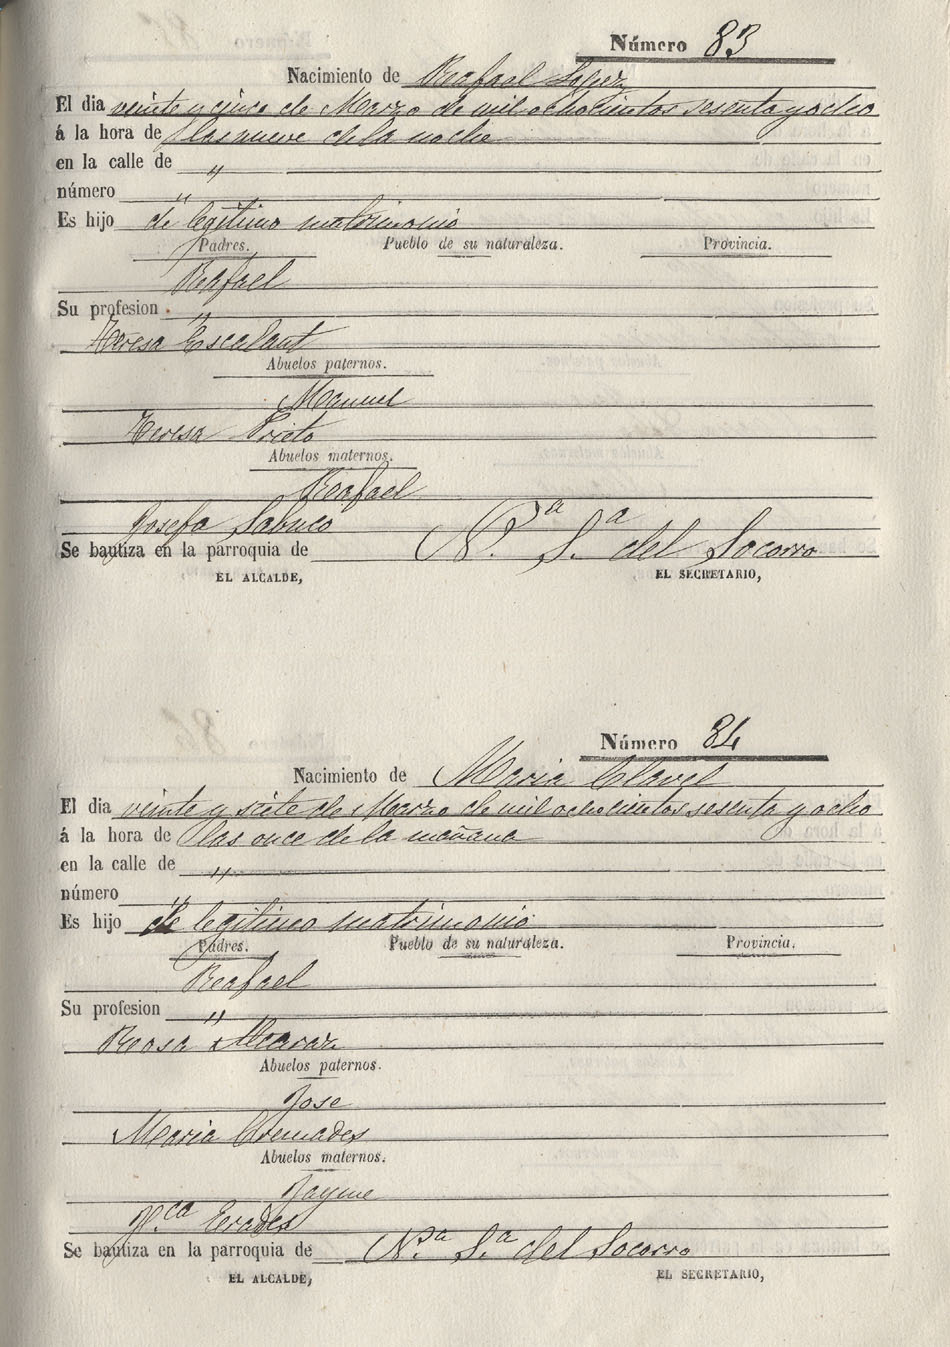 Número 83
Nacimiento de Rafael Lopez
El dia veinte y cinco de Marzo de mil ochocientos sesenta y ocho
á la hora de las nueve de la noche
en la calle de "
número "
Es hijo de legitimo matrimonio
Padres. Pueblo de su naturaleza. Provincia.
Rafael
Su profesion "
Teresa Escalant
Abuelos paternos.
Manuel
Teresa Prieto
Abuelos maternos.
Rafael
Josefa Sabuco
Se bautiza en la parroquia de N.ª S.ª del Socorro
EL ALCALDE, EL SECRETARIO,
Número 84
Nacimiento de Maria Clavel
El dia veinte y siete de Marzo de mil ochocientos sesenta y ocho
á la hora de las once de la mañana
en la calle de "
número "
Es hijo de legitimo matrimonio
Padres. Pueblo de su naturaleza. Provincia.
Rafael
Su profesion "
Rosa Alcaraz
Abuelos paternos.
Jose
Maria Cremades
Abuelos maternos.
Jayme
Erades
Se bautiza en la parroquia de N.ª S.ª del Socorro
EL ALCALDE, EL SECRETARIO,